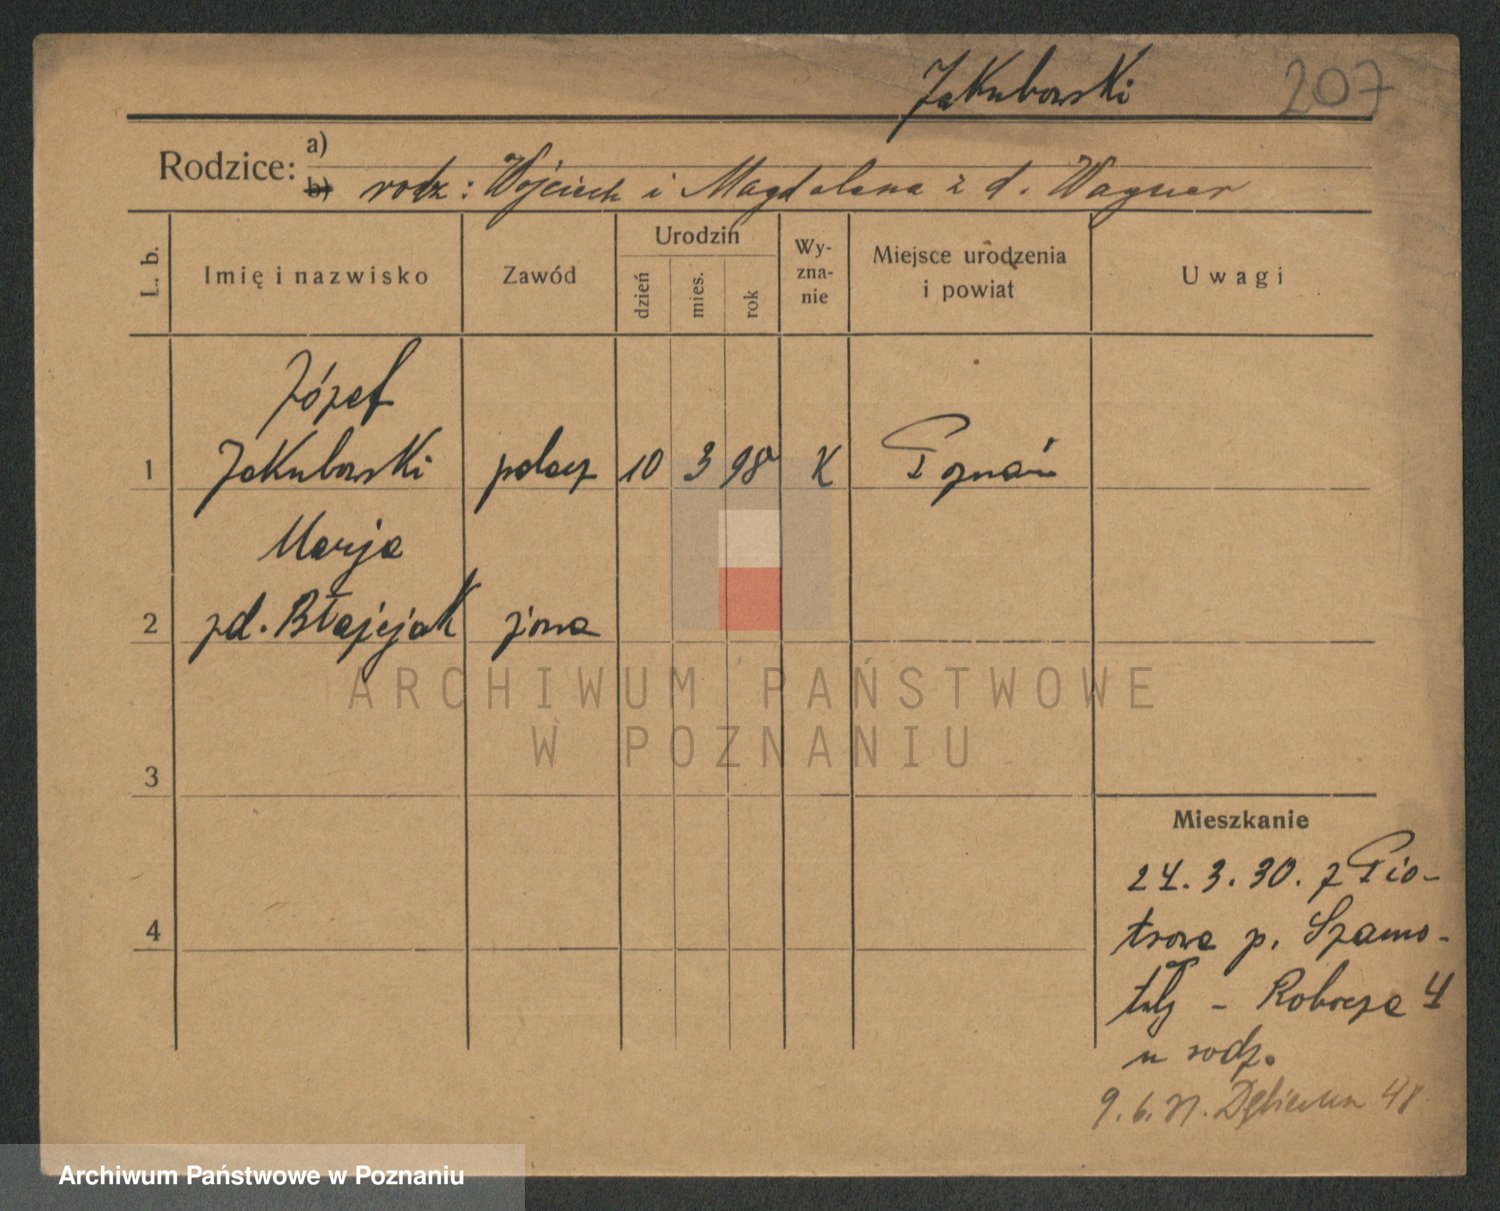 Jakubowski 207
Rodzice: a)
b) rodz: Wojciech i Magdalena z d. Wagner
L. b.
Imię i nazwisko
Zawód
Urodzin
dzień
mies.
rok
Wy-
zna-
nie
Miejsce urodzenia
i powiat
Uwagi
Józef
1 Jakubowski 10 3 98 K Poznań
Marja
2 zd. Błażejak żona
3
4
Mieszkanie
24.3.30. z Pio-
trowa p. Szamo-
tuły - Robocza 4
u rodz.
9.6.31. 48
ARCHIWUM PAŃSTWOWE
W POZNANIU
Archiwum Państwowe w Poznaniu